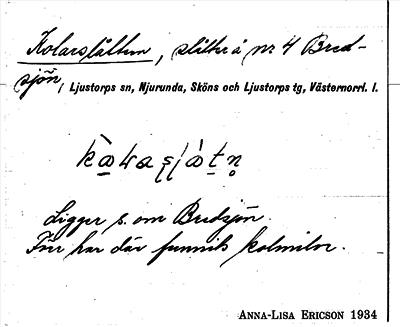 Kolarslåtten, slåtter å nr 4 Bred-
sjön, Ljustorps sn, Njurunda, Sköns och Ljustorps tg, Västernorrl. l.
Ligger s. om Bredsjön.
Förr har där funnits kolmilor.
ANNA-LISA ERICSON 1934